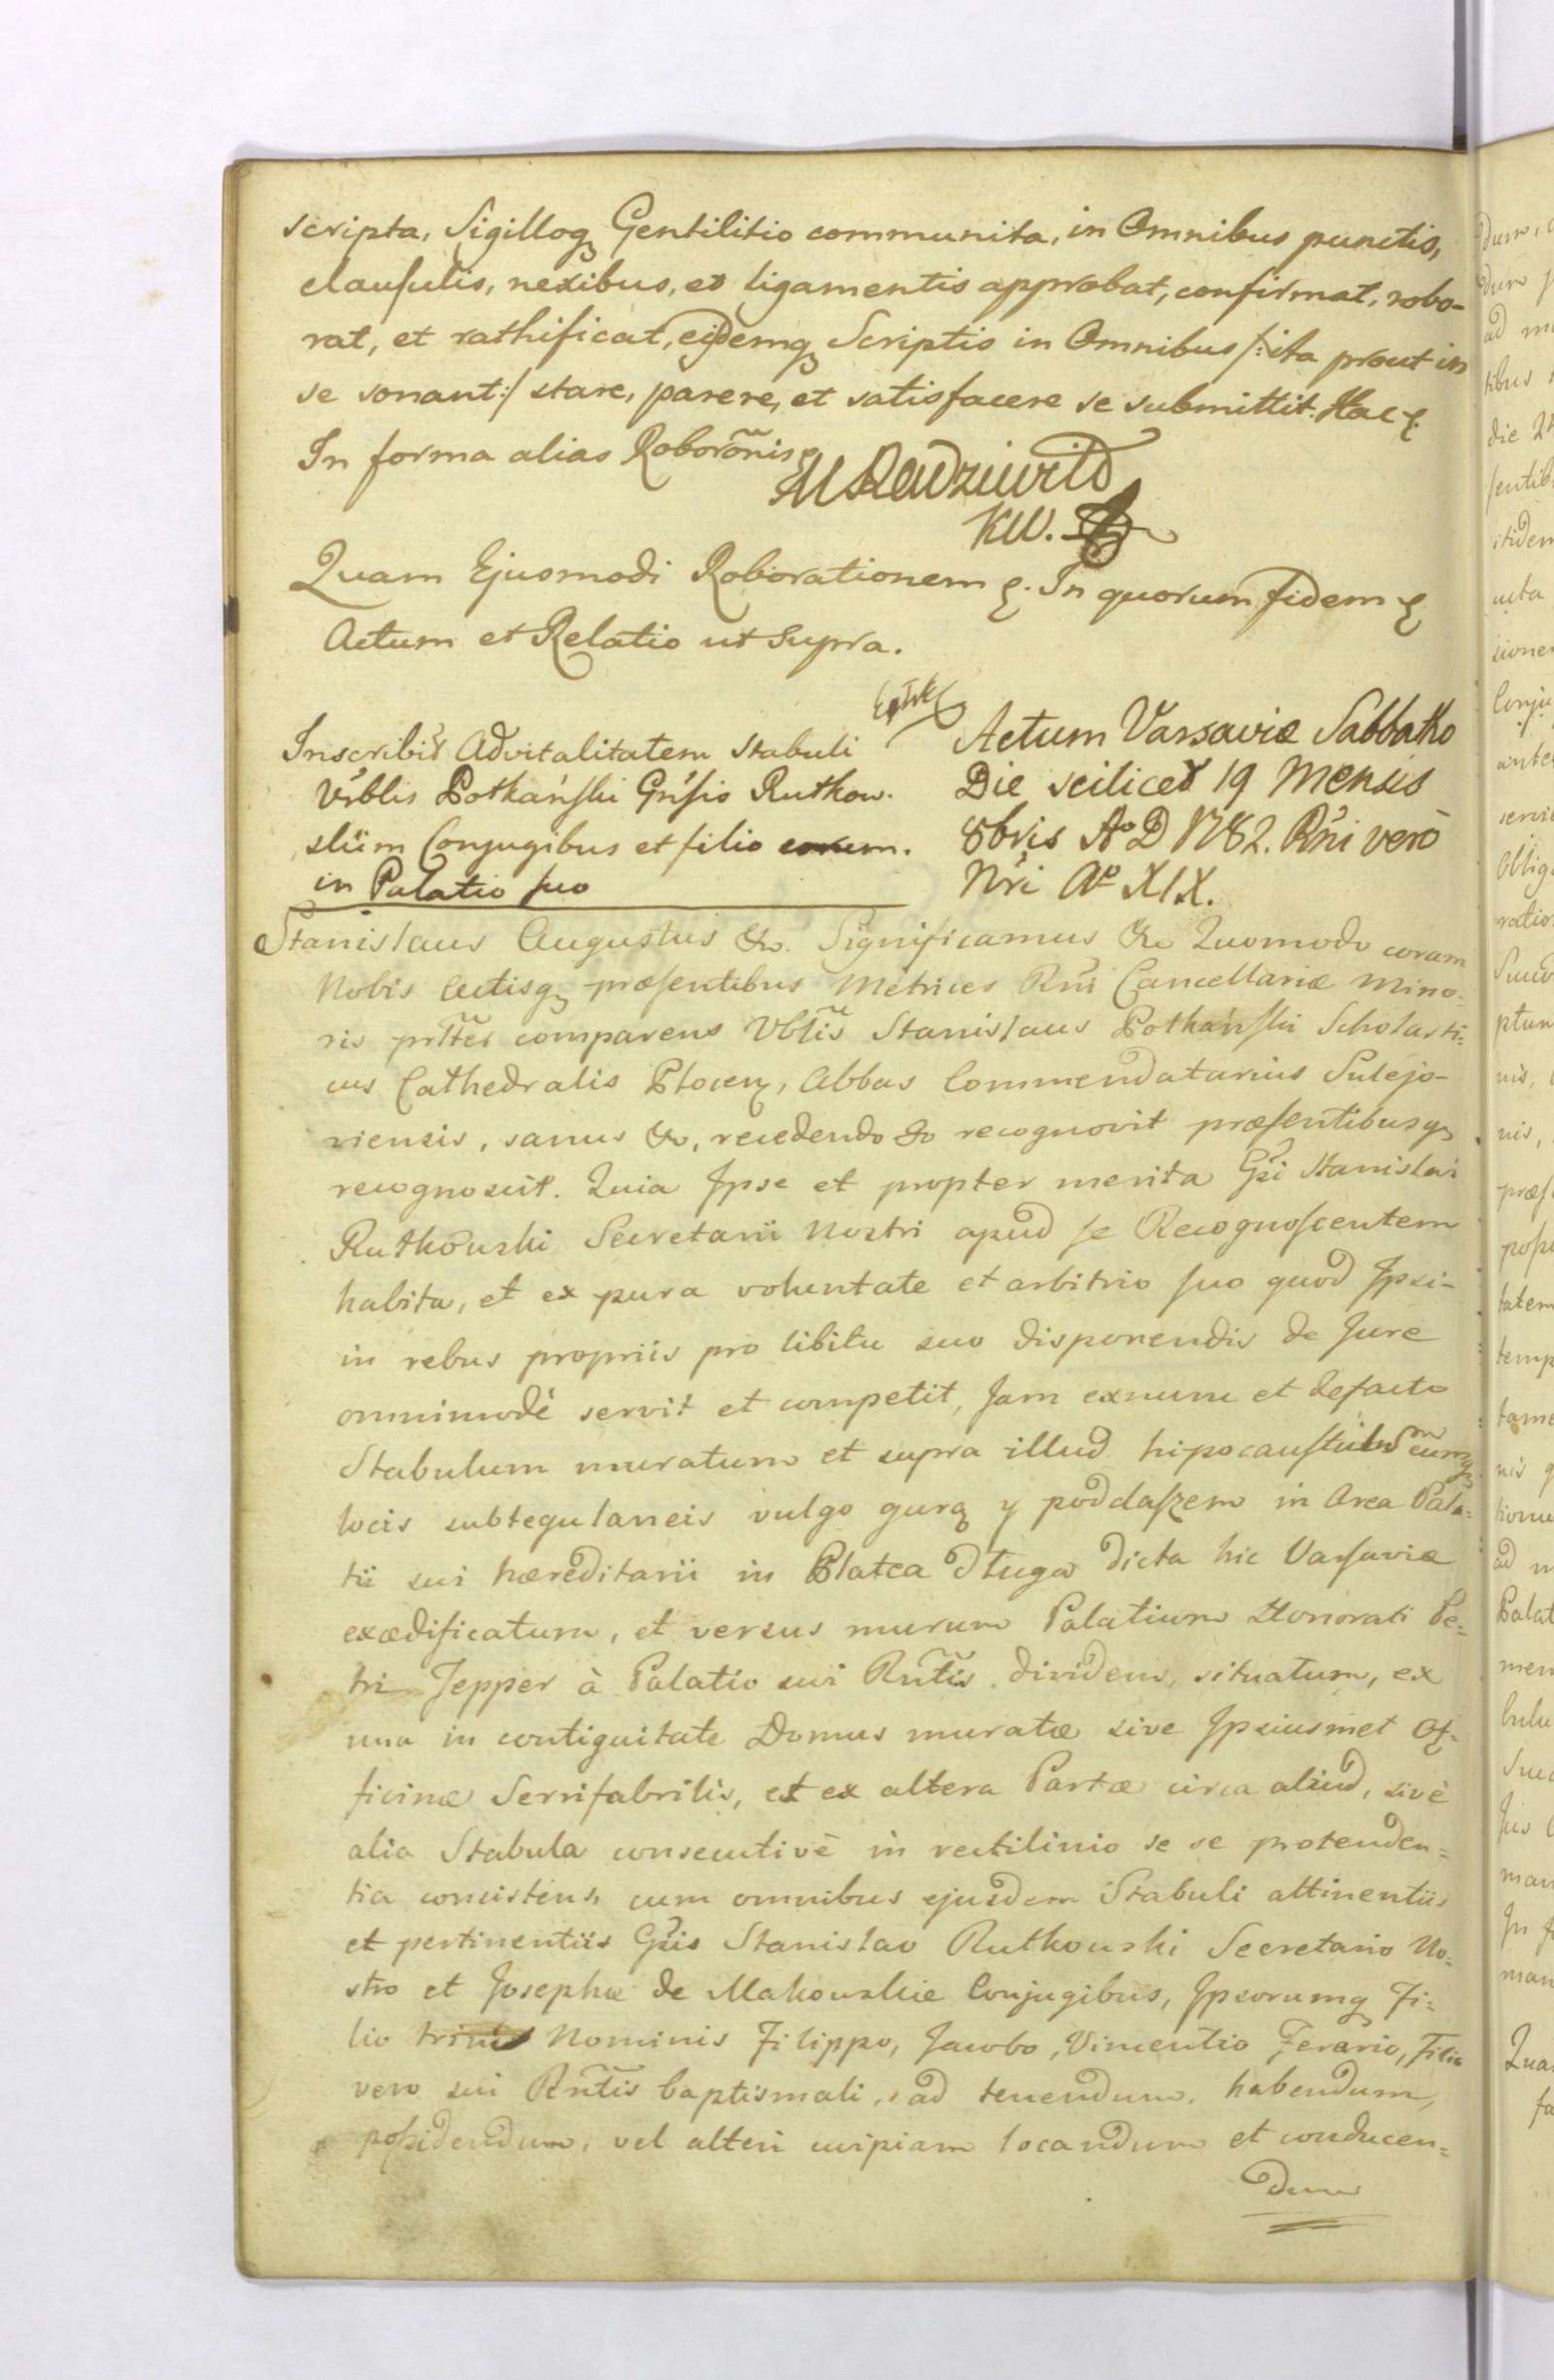 scripta, Sigilloq Gentilitio communita, in Omnibus punctis,
clausulis, nexibus, et ligamentis approbat, confirmat, robo-
rat, et rathificat, ejsdemq Scriptis in Omnibus /: ita prout in
se sonant :/ stare, parere, et satisfacere se submittit. Hac
In forma alias Roborõnis
M Radziwiłł
KW.
Quam Ejusmodi Roborationem &. In quorum fidem &
Actum et Relatio ut Supra.
Inscribir Advitalitatem Stabuli
Vrblis Potkański Grsis Rutkow.
skiim Conjugibus et filio eorum.
in Palatio suo
Actum Varsaviæ Sabbatho
Die scilicet 19 Mensis
8bris Ao D 1782. Rñi verò
Nri Ao XIX.
Stanislaus Augustus &c. Significamus &c Quomodo coram
Nobis Actisq præsentibus Metrices Rni Cancellariæ Mino=
ris prltes comparens Vbtis Stanislaus Potkański Scholasti=
cus Cathedralis Plocen, Abbas Commendatarius Sulejo-
viensis, sanus &c, recedendo &c recognovit præsentibusq
recognoscit. Quia Ipse et propter merita Gsi Stanislai
Rutkowski Secretarii Nostri apud se Recognoscentem
habita, et ex pura voluntate et arbitrio suo quod Ipsi-
in rebus propriis pro libitu suo disponendis de Jure
omnimodè servit et competit, Jam exnunc et defacto
Stabulum muratum et supra illud hipocaustulum cumq
locis subtegulaneis vulgo gurą y poddaszem in Area Pala=
tii sui hæreditarii in Platea Długa dicta hic Varsaviæ
exædificatum, et versus murum Palatium Honorati Pe=
tri Jepper à Palatio sui Rñtis dividens, situatum, ex
una in contiguitate Domus muratæ sive Ipsiusmet Of-
ficinæ Serrifabrilis, et ex altera Partæ circa aliud, sivè
alia Stabula consecutivè in rectilinio se se protenden=
tia consistens, cum omnibus ejusdem Stabuli attinentiis
et pertinentiis Gsis Stanislao Rutkowski Secretario No=
stro et Josephæ de Makowskie Conjugibus, Ipsorumq Fi=
lio trini Nominis Filippo, Jacobo, Vincentio Ferario, Filio
vero sui Rñtis baptismali, ad tenendum, habendum,
possidendum, vel alteri cuipiam locandum et conducen=
dum